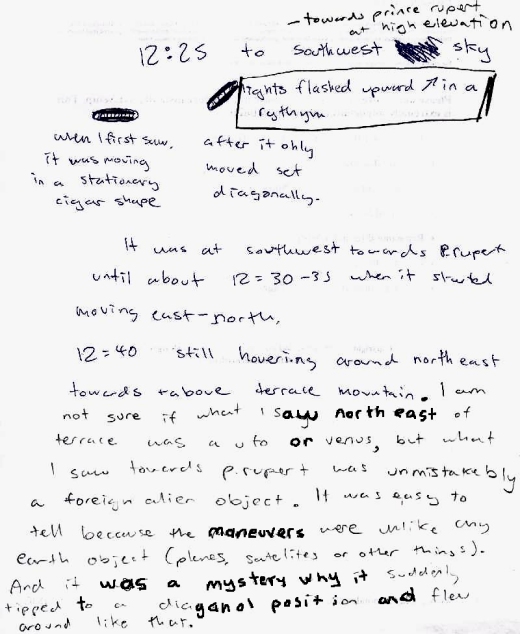 - towards prince rupert
at high elevation
12:25 to southwest sky
lights flashed upward ↗ in a
rythym
when I first saw.
it was moving
in a stationary
cigar shape
after it only
moved set
diagonally.
It was at southwest towards P.rupert
until about 12=30-35 when it started
moving east-north,
12=40 still hovering around northeast
towards + above terrace mountain. I am
not sure if what I saw north east of
terrace was a ufo or venus, but what
I saw towards p.rupert was unmistakebly
a foreign alien object. It was easy to
tell because the maneuvers were unlike any
earth object (planes, satelites or other things).
And it was a mystery why it suddenly
tipped to a diaganol position and flew
around like that.